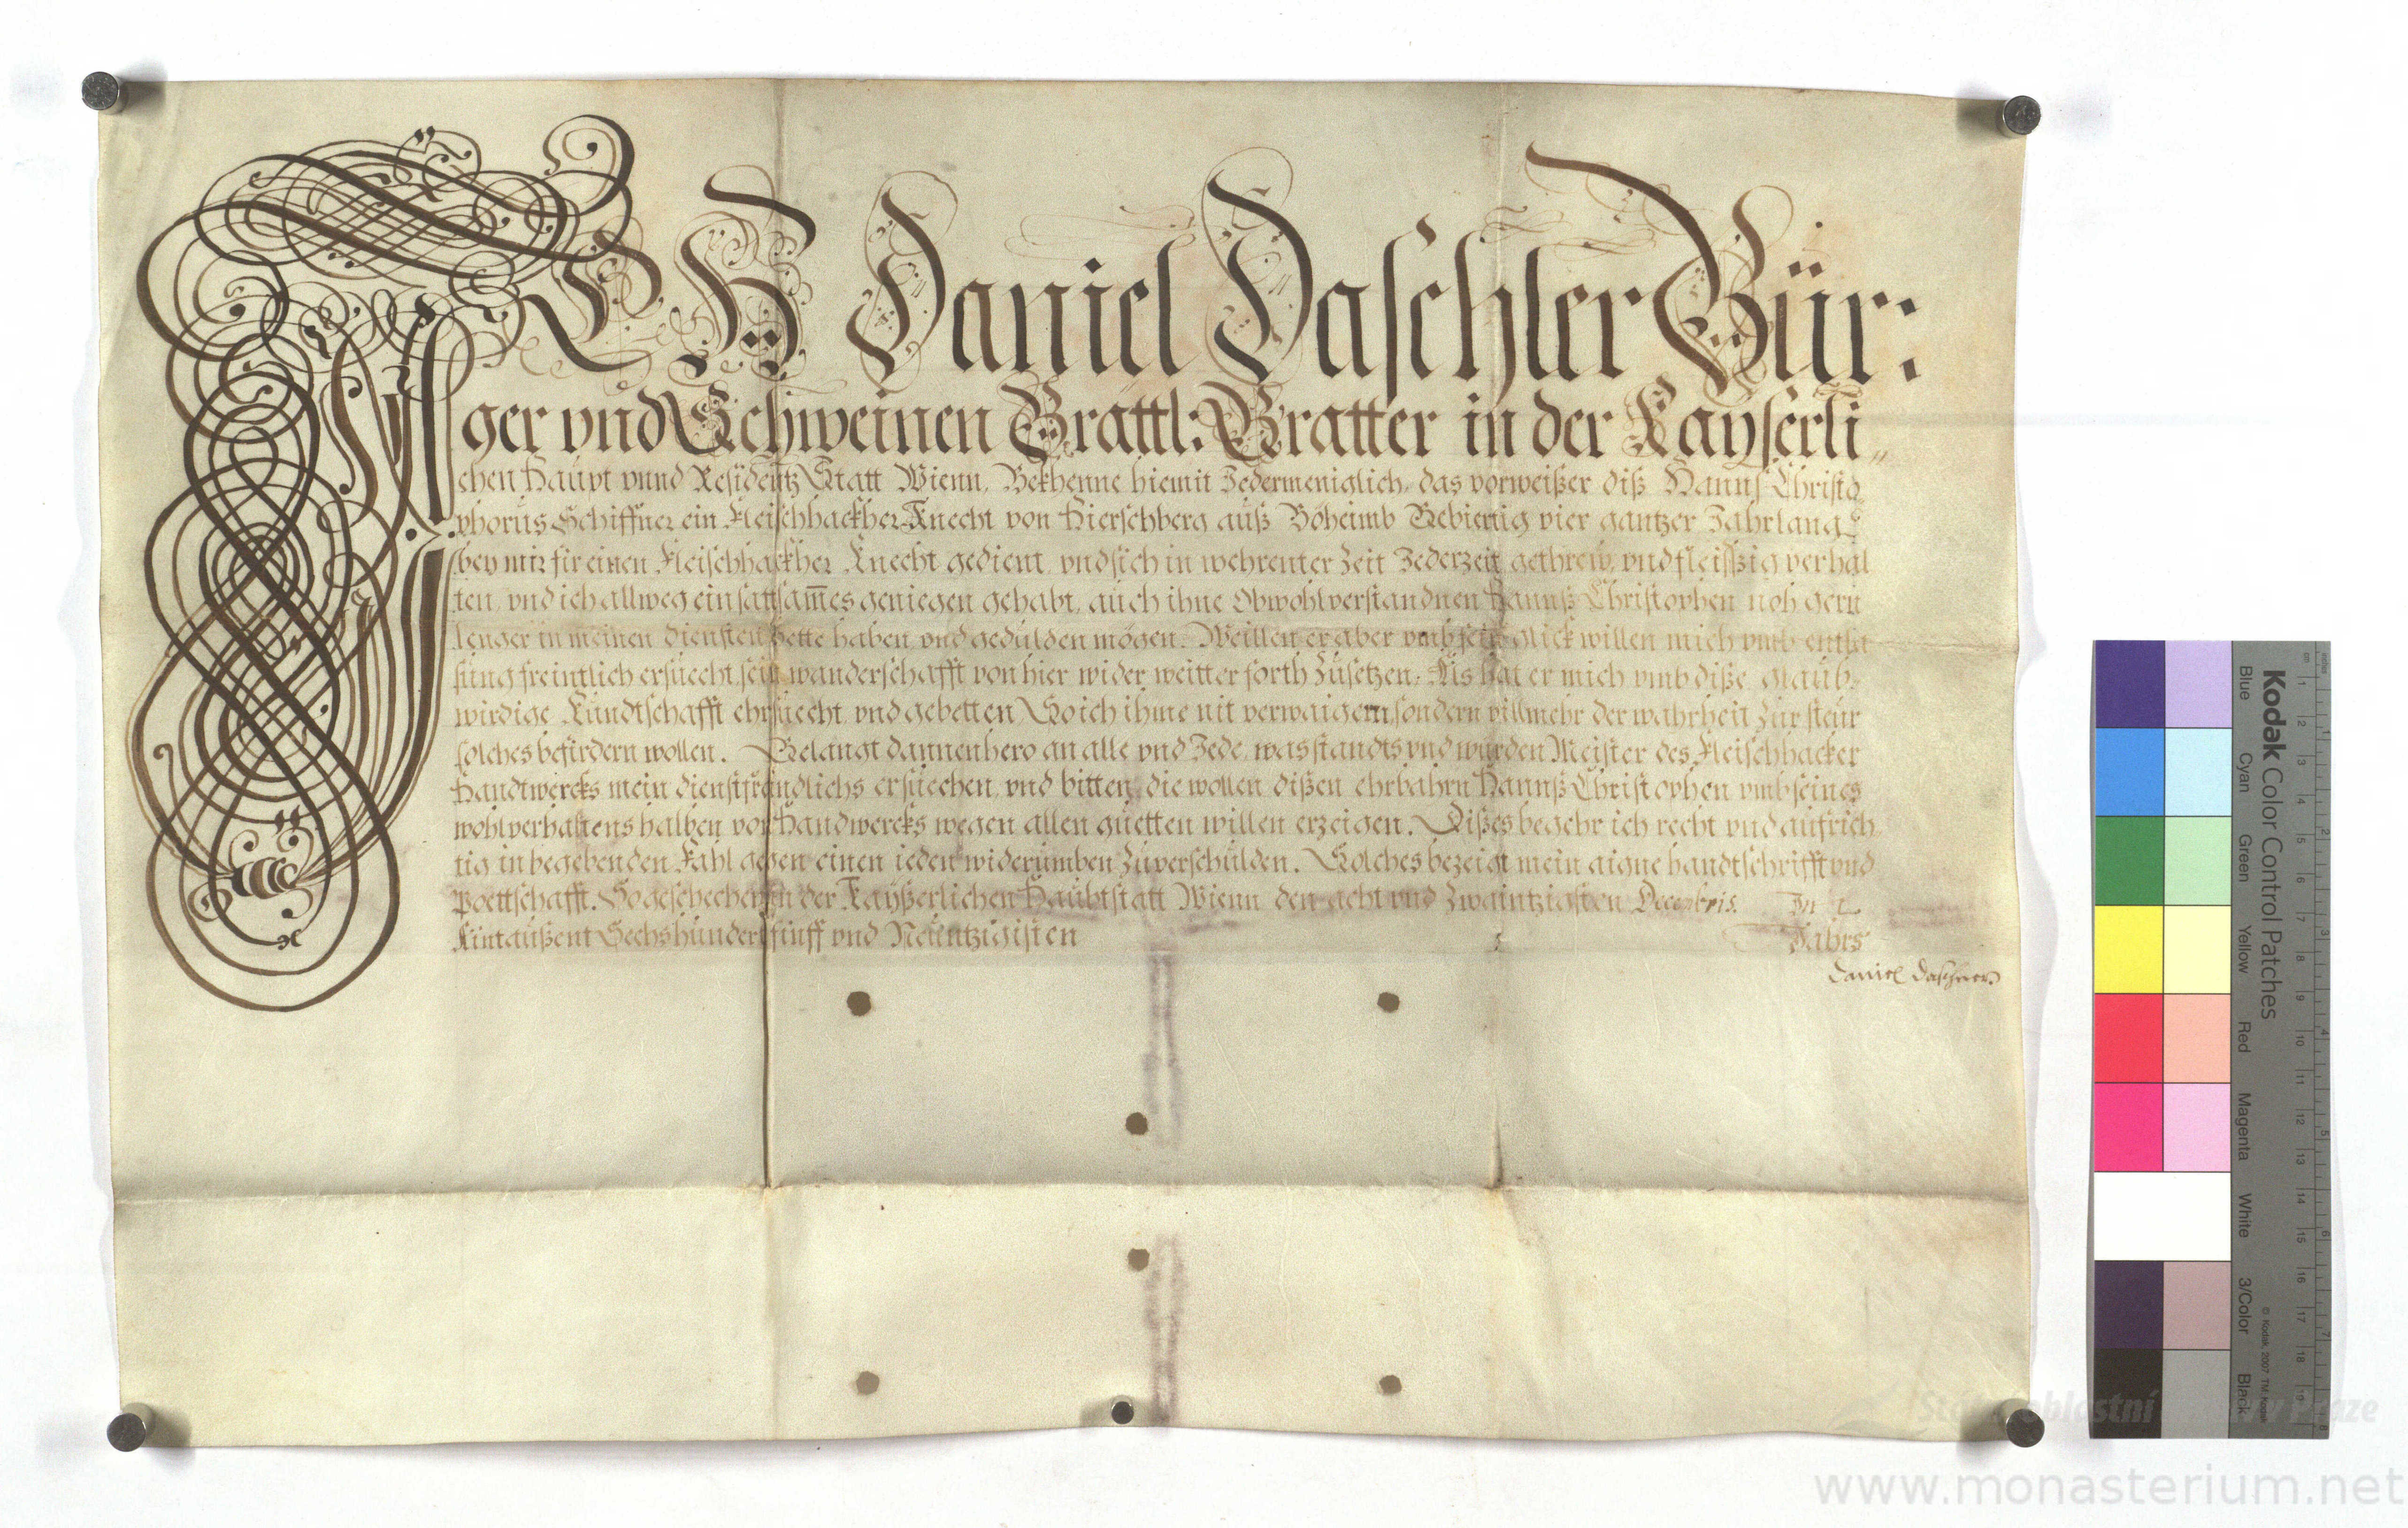 ICH Daniel Daschler Bür:
ger vnd Schweinen Brattl: Bratter in der Kayserli„
chen Haupt vnnd Residentz Statt Wienn, Bekhenne hiemit Jedermeniglich, das vorweißer diß Hannß Christo
phorus Schiffner ein Fleischhackher Knecht von Hierschberg auß Böheimb Gebiertig vier gantzer Jahr lang
bey mir fir einen Fleischhackher Knecht gedient, vnd sich in wehrenter Zeit Jederzeit gethrew, vnd fleissig verhal
ten, vnd ich allweg ein sattsam̅es geniegen gehabt, auch ihne Obwohlverstandnen Hannß Christophen noh gern
lenger in meinen diensten hette haben vnd gedulden mögen. Weillen er aber vmb sein glick willen mich vmb entla
sung freintlich ersuecht, sein wanderschafft von hier wider weitter forth Zusetzen, Als hat er mich vmb diße glaub„
wirdige Kundtschafft ehrsuecht, vnd gebetten, So ich ihme nit verwaigern, sondern villmehr der wahrheit Zur steür
solches befirdern wollen. Gelangt dannenhero an alle vnd Jede, was standts vnd würden Meister des Fleischhacker
Handtwercks mein dienstfreindlichs ersuechen, vnd bitten, die wollen dißen ehrbahrn Hannß Christophen vmb seines
wohlverhaltens halben vor Handwercks wegen allen guetten willen erzeigen. Dißes begehr ich recht vnd aufrich
tig in begebenden Fahl gegen einen ieden widerumben Zuverschulden. Solches bezeigt mein aigne handtschrifft vnd
Poettschafft. So geschechen in der Kayßerlichen Haubtstatt Wienn den acht vnd Zwaintzigsten Decembris. In
Eintaußent Sechshundert finff vnd Neüntzigisten Jahrs
Daniel Daschner
Kodak Color Control Patches
Blue Cyan Green Yellow Red Magenta White 3/Color Black
© Kodak, 2007 TM: Kodak
Státní oblastní archiv v Praze
www.monasterium.net